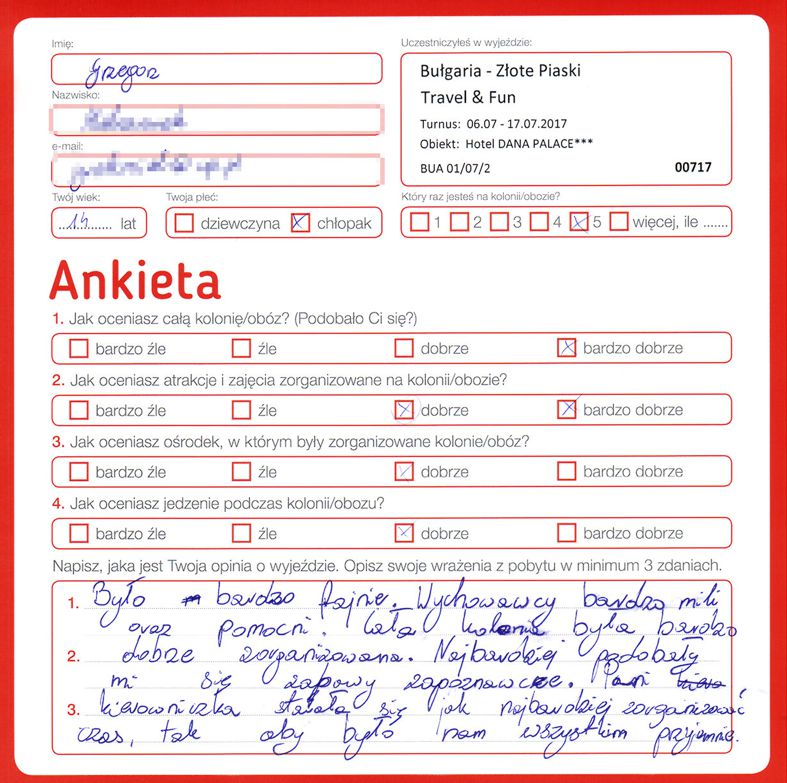 Imię:
Grzegorz
Nazwisko:
e-mail:
Twój wiek:
14 lat
Twoja płeć:
dziewczyna chłopak
Uczestniczyłeś w wyjeździe:
Bułgaria - Złote Piaski
Travel & Fun
Turnus: 06.07 - 17.07.2017
Obiekt: Hotel DANA PALACE***
BUA 01/07/2 00717
Który raz jesteś na kolonii/obozie?
1 2 3 4 5 więcej, ile .......
Ankieta
1. Jak oceniasz całą kolonię/obóz? (Podobało Ci się?)
bardzo źle źle dobrze bardzo dobrze
2. Jak oceniasz atrakcje i zajęcia zorganizowane na kolonii/obozie?
bardzo źle źle dobrze bardzo dobrze
3. Jak oceniasz ośrodek, w którym były zorganizowane kolonie/obóz?
bardzo źle źle dobrze bardzo dobrze
4. Jak oceniasz jedzenie podczas kolonii/obozu?
bardzo źle źle dobrze bardzo dobrze
Napisz, jaka jest Twoja opinia o wyjeździe. Opisz swoje wrażenia z pobytu w minimum 3 zdaniach.
1. Było bardzo fajnie. Wychowawcy bardzo mili
oraz pomocni. Cała kolonia była bardzo
2. dobrze zorganizowana. Najbardziej podobały
mi się zapowy zapoznawcze. Pani
3. kierowniczka starała się jak najbardziej zorganizować
czas, tak aby było nam wszystkim przyjemnie.